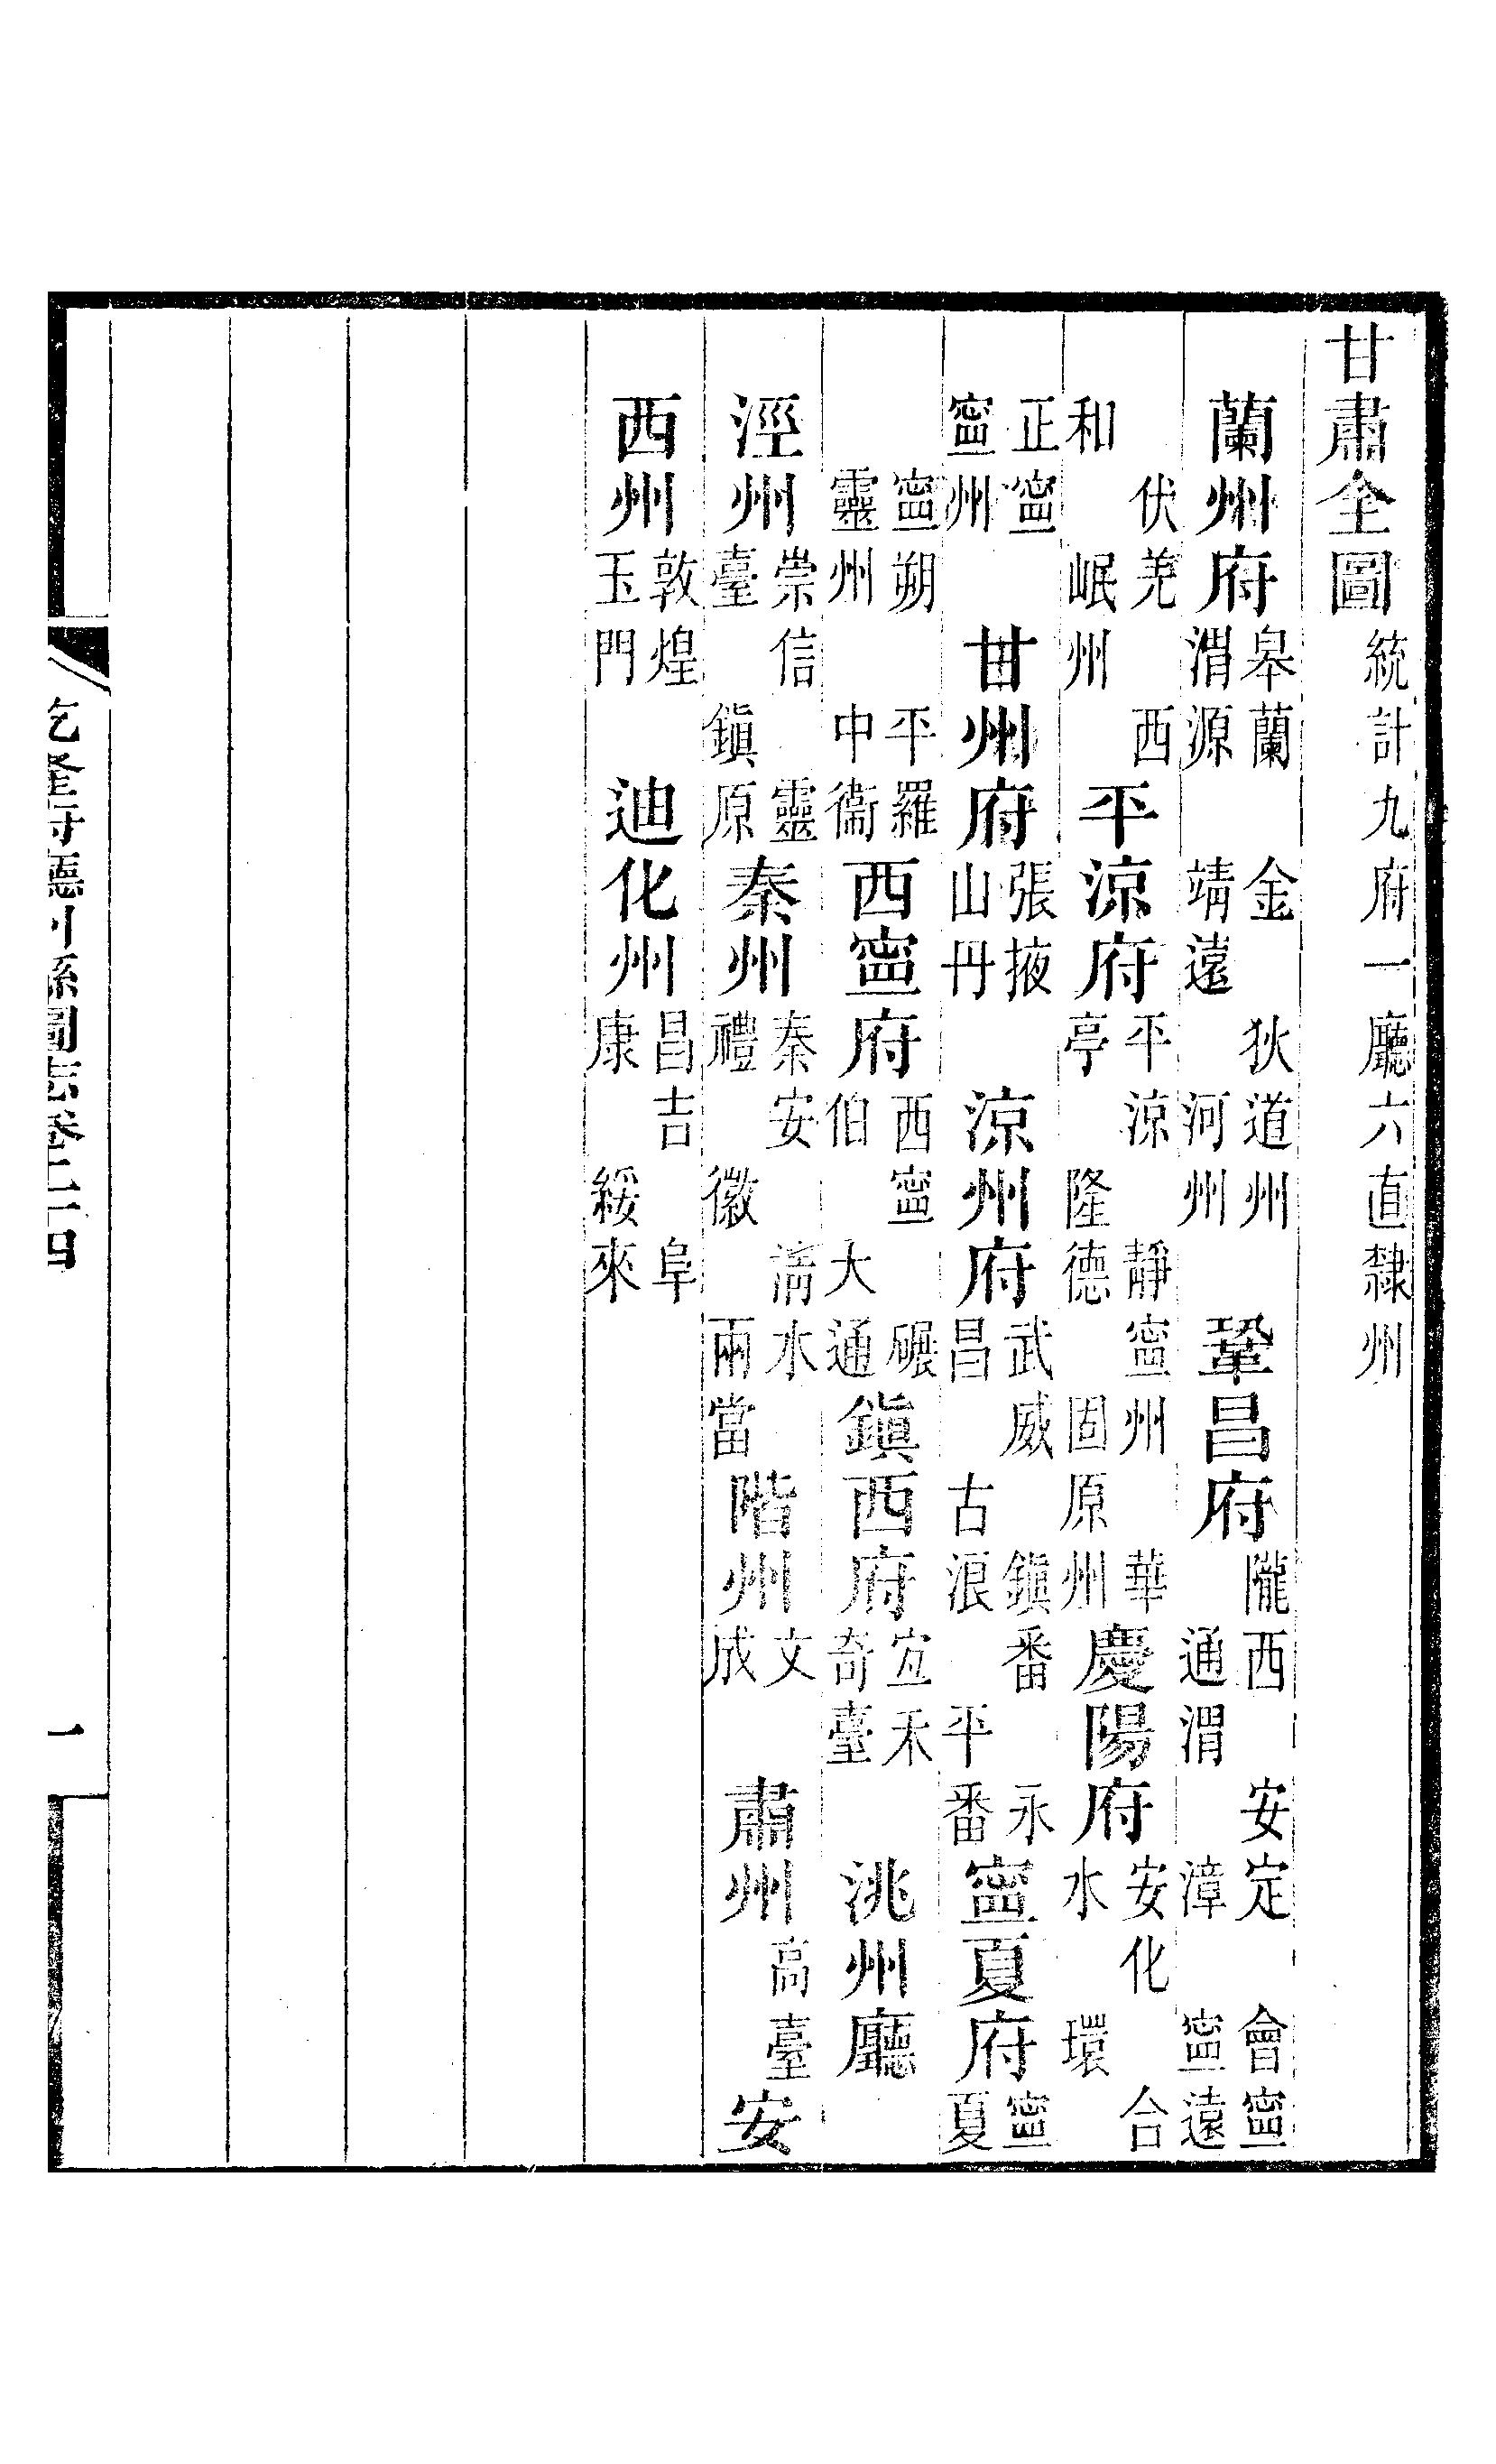 甘肅全圖 統計九府一廳六直隸州
蘭州府 皋蘭 金 狄道州 渭源 靖遠 河州 鞏昌府 隴西 安定 會寍 通渭 漳 寍遠
伏羌 西 和 岷州 平涼府 平涼 靜寍州 華亭 隆德 固原州 慶陽府 安化 合水 環
正寍 寍州 甘州府 張掖 山丹 涼州府 武威 鎭番 永昌 古浪 平番 寍夏府 寍夏
寍朔 平羅 靈州 中衞 西寍府 西寍 碾伯 大通 鎭西府 宜禾 奇臺 洮州廳
涇州 崇信 靈臺 鎭原 秦州 秦安 清水 禮 徽 兩當 階州 文 成 肅州 高臺 安
西州 敦煌 玉門 迪化州 昌吉 阜康 綏來
乾隆府廳州縣圖志卷二十四 一